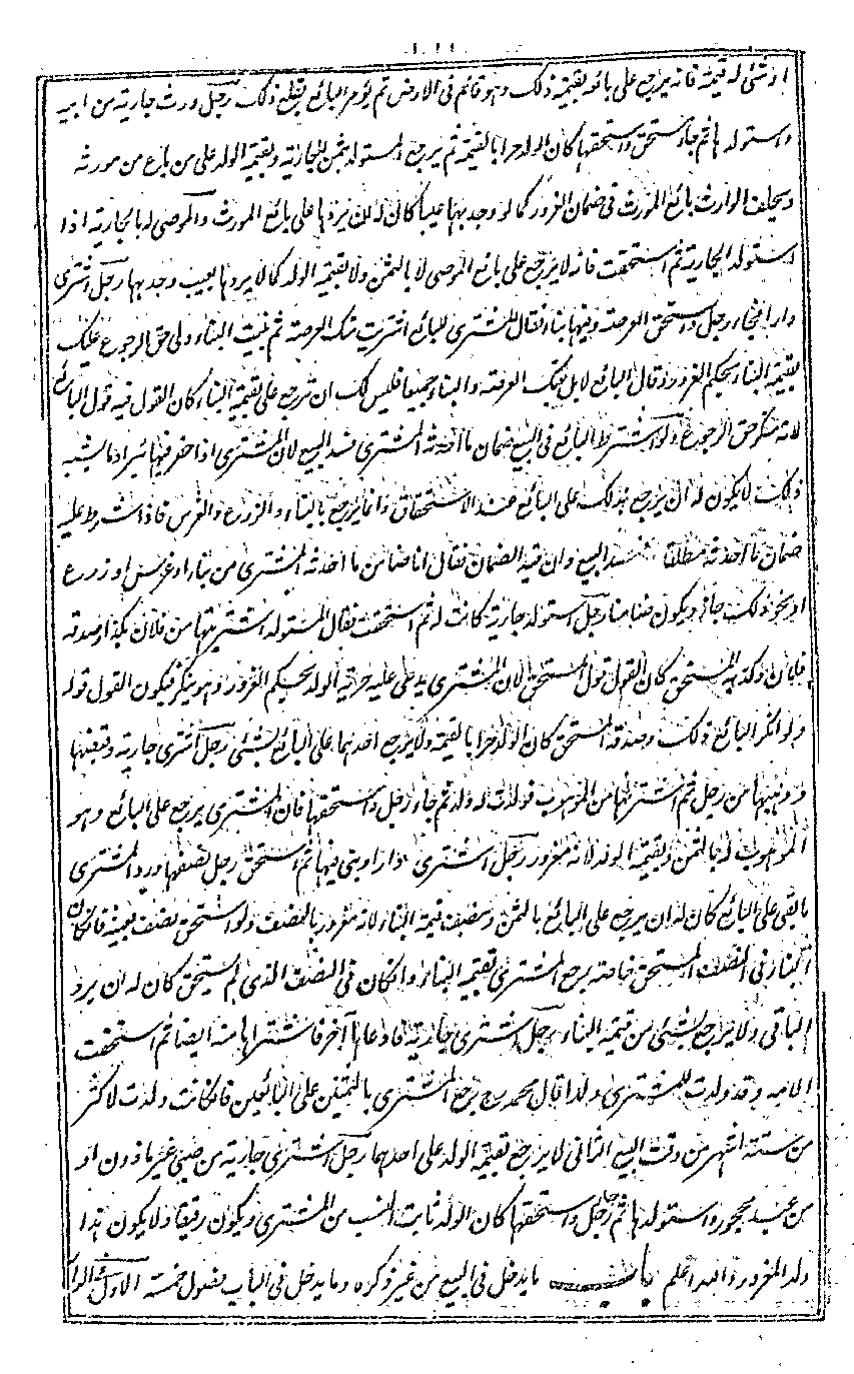 او شئ له قيمة فانه يرجع على بائعه بقيمة ذلك وهو قائم فى الارض ثم يؤمر البائع بقلع ذلك رجل ورث جارية من ابيه
واستولدها ثم جاء مستحق واستحقها كان الولد حرا بالقيمة ثم يرجع المستولد بثمن الجارية وبقيمة الولد على من باع من مورثه
ويخلف الوارث بائع المورث فى ضمان الغرور كما لو وجد بها عيبا كان له ان يردها على بائع المورث والموصى له بالجارية اذا
استولد الجارية ثم استحقت فانه لا يرجع على بائع الموصى لا بالثمن ولا بقيمة الولد كما لا يردها بعيب وجد بها رجل اشترى
دارا فجاء رجل واستحق العرصة وفيها بناء فقال المشترى للبائع اشتريت منك العرصة ثم بنيت البناء ولى حق الرجوع عليك
بقيمة البناء بحكم الغرور وقال البائع لا بل بعتك العرصة والبناء جميعا فليس لك ان ترجع على بقيمة البناء كان القول فيه قول البائع
لانه منكر حق الرجوع ولو اشترط البائع فى البيع ضمان ما احدثه المشترى فسد البيع لان المشترى اذا حفر فيها بيرا وما يشبه
ذلك لا يكون له ان يرجع بذلك على البائع عند الاستحقاق وانما يرجع بالبناء والزرع والغرس فاذا شرط عليه
ضمان ما احدثه مطلقا فسد البيع وان قيد الضمان فقال انا ضامن ما احدثه المشترى من بناء او غرس او زرع
او نحو ذلك جاز ويكون ضامنا رجل استولد جارية كانت له ثم استحقت فقال المستولد اشتريتها من فلان بكذا وصدقه
فلان وكذبه المستحق كان القول قول المستحق لان المشترى يدعى عليه حرية الولد بحكم الغرور وهو ينكر فيكون القول قوله
ولو انكر البائع ذلك وصدقه المستحق كان الولد حرا بالقيمة ولا يرجع احدهما على البائع بشئ رجل اشترى جارية وقبضها
ووهبها من رجل ثم اشتراها من الموهوب فولدت له ولد ثم جاء رجل واستحقها فان المشترى يرجع على البائع وهو
الموهوب له بالثمن وبقيمة الولد لانه مغرور رجل اشترى دارا وبنى فيها ثم استحق رجل نصفها ورد المشترى
ما بقى على البائع كان له ان يرجع على البائع بالثمن وبنصف قيمة البناء لانه مغرور بالنصف ولو استحق نصف بعينه فان كان
البناء فى النصف المستحق خاصة يرجع المشترى بقيمة البناء وان كان فى النصف الذى لم يستحق كان له ان يرد
الباقى ولا يرجع بشئ من قيمة البناء رجل اشترى جارية فادعاها آخر فاشتراها منه ايضا ثم استحقت
الامة وقد ولدت للمشترى ولدا قال محمد رح يرجع المشترى بالثمنين على البائعين فان كانت ولدت لاكثر
من ستة اشهر من وقت البيع الثانى لا يرجع بقيمة الولد على احدهما رجل اشترى جارية من صبى غير ماذون او
من عبد محجور واستولدها ثم جاء رجل واستحقها كان الولد ثابت النسب من المشترى ويكون رقيقا ولا يكون هذا
ولد المغرور والله اعلم باب ما يدخل فى البيع من غير ذكره وما يدخل فى الباب فصول خمسة الاول